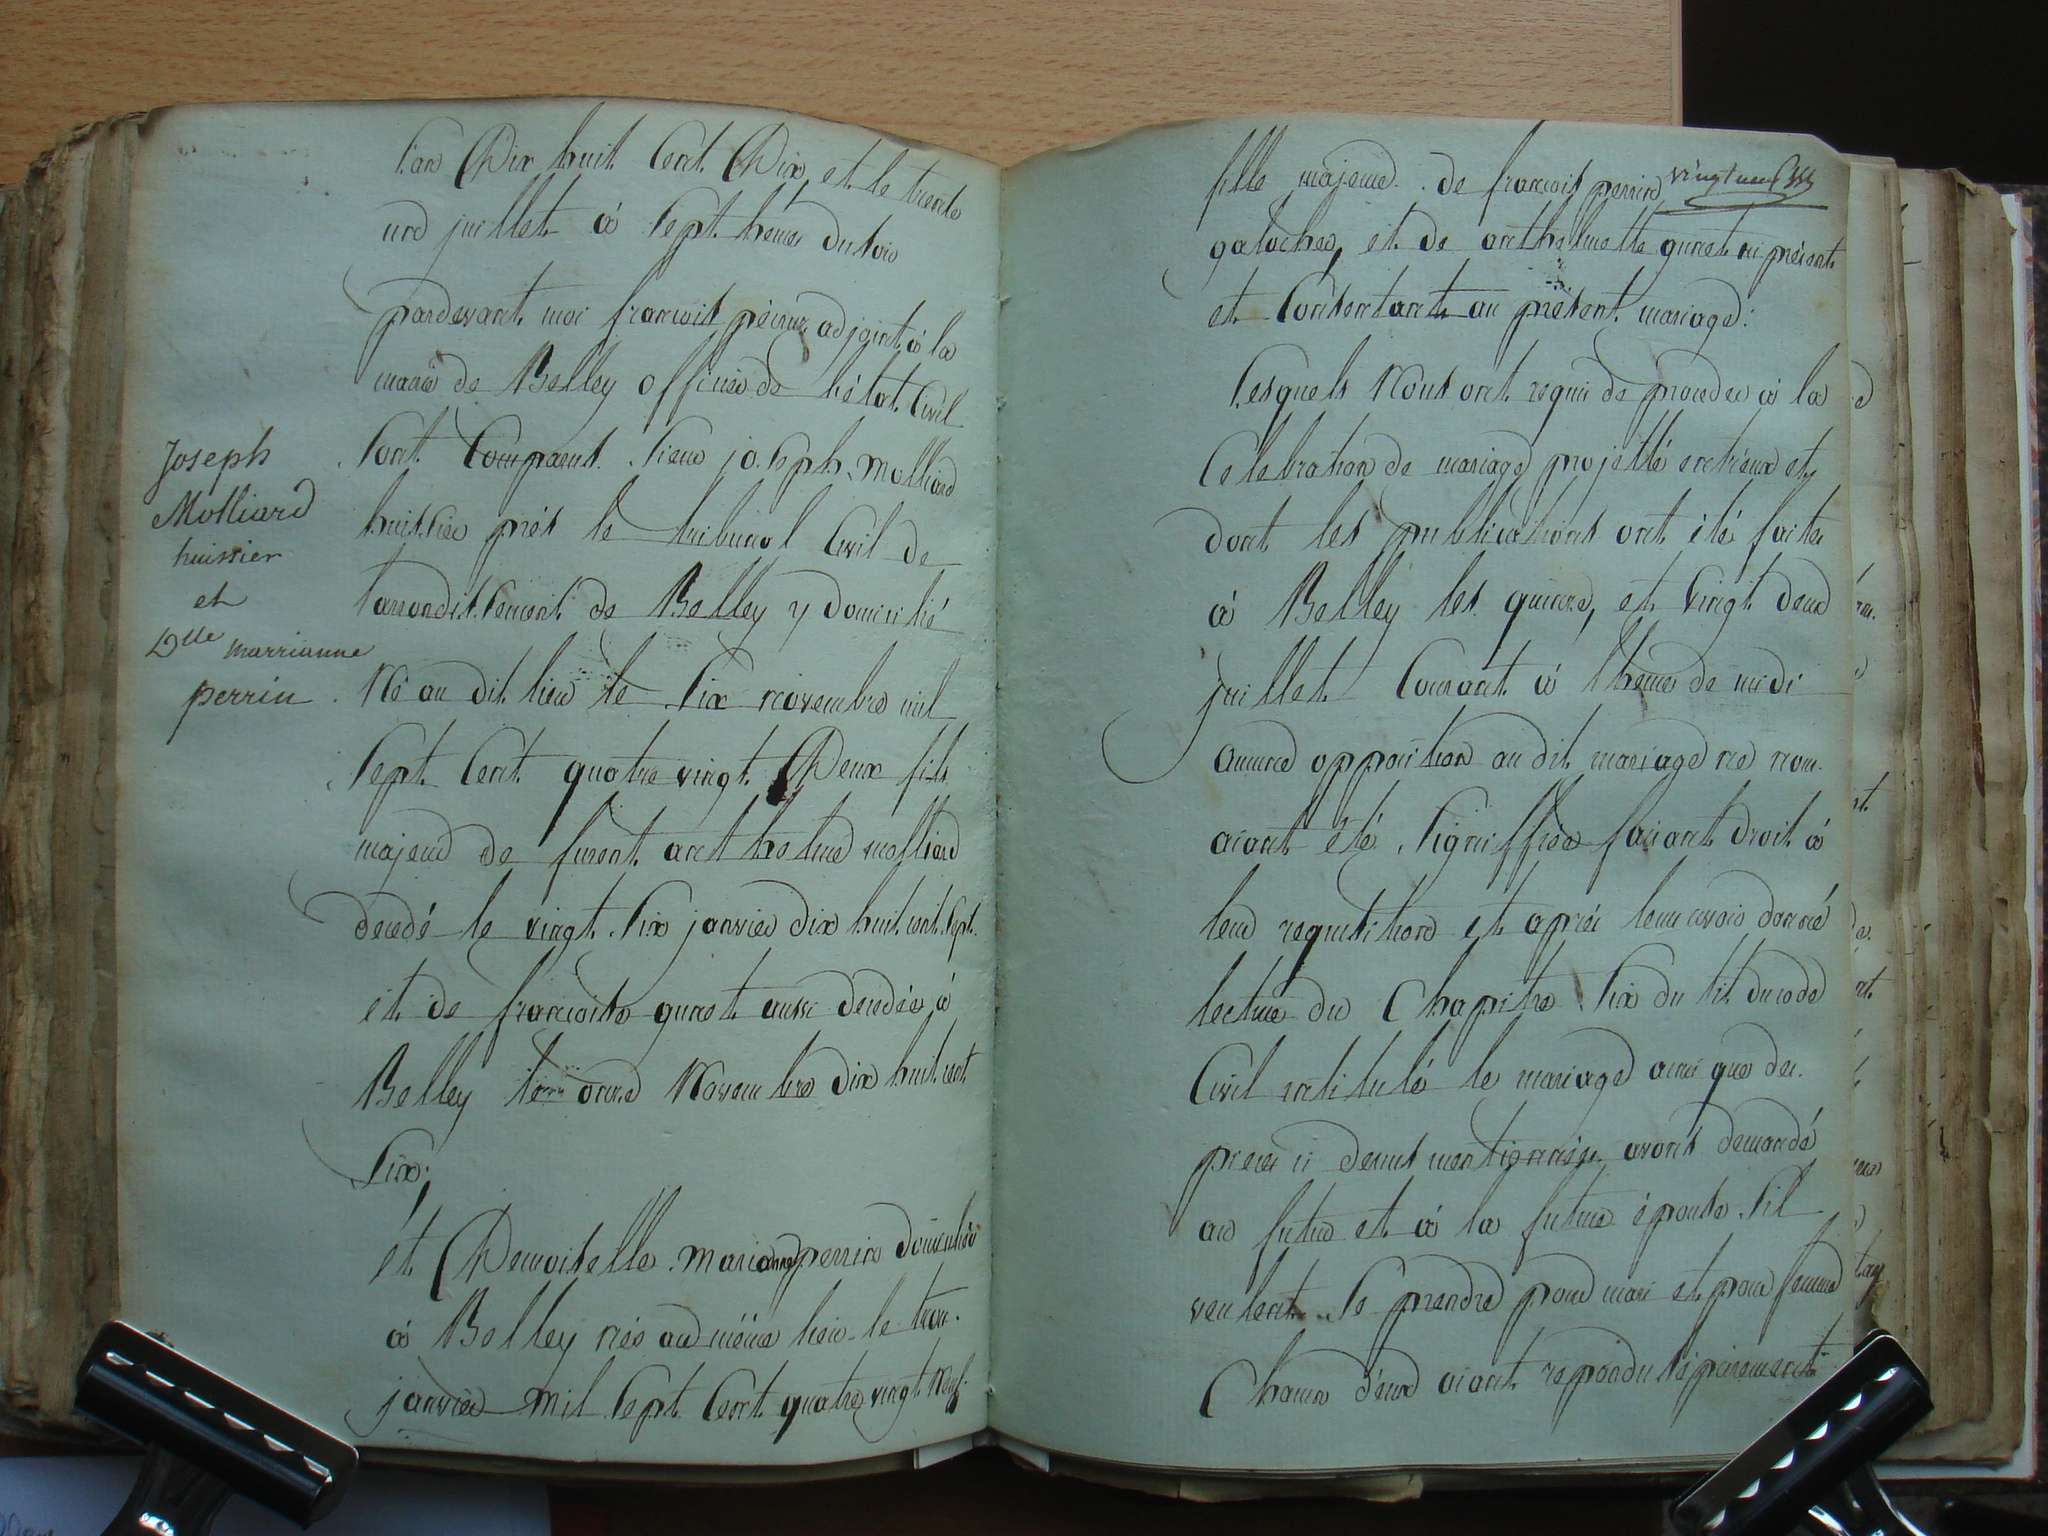 l'an Dix huit Cent Dix et le trente
un juillet à Sept heures du soir
pardevant moi françois adjoint à la
mairie de Belley officier de l'état Civil
Sont Comparus Sieur joseph Molliard
huissier près le tribunal Civil de
l'arrondissement de Belley y domicilié
Né au dit lieu le Six novembre mil
Sept Cent quatre vingt Deux fils
majeur de furent anthelme molliard
décedé le vingt Six janvier dix huit cent Sept
et de françoise aussi décedée à
Belley le onze Novembre dix huit cent
Six;
et Demoiselle marianne perrin domiciliée
à Belley née au même lieu le trois
janvier mil Sept Cent quatre vingt Neuf
Joseph
Molliard
huissier
et
Dlle marrianne
perrin
vingt neuf
fille majeure de françois perrin
galochee, et de anthelmette ci présents
et Consentants au présent mariage:
Lesquels Nous ont requis de proceder à la
Celebration de mariage projetté entr'eux et
dont les publications ont été faites
à Belley les quinze, et vingt deux
juillet Courant à l'heure de midi
aucune opposition au dit mariage ne nous
aiant été Signiffiée faisant droit à
leur requisition et après leur avoir donné
lecture du Chapitre Six du tit du code
Civil intitulé le mariage ainsi que des
pieces ci dessus mentionnées avons demandé
au futur et à la future épouse S'il
veulent Se prendre pour mari et pour femme
Chacun d'eux aiant repondu séparement